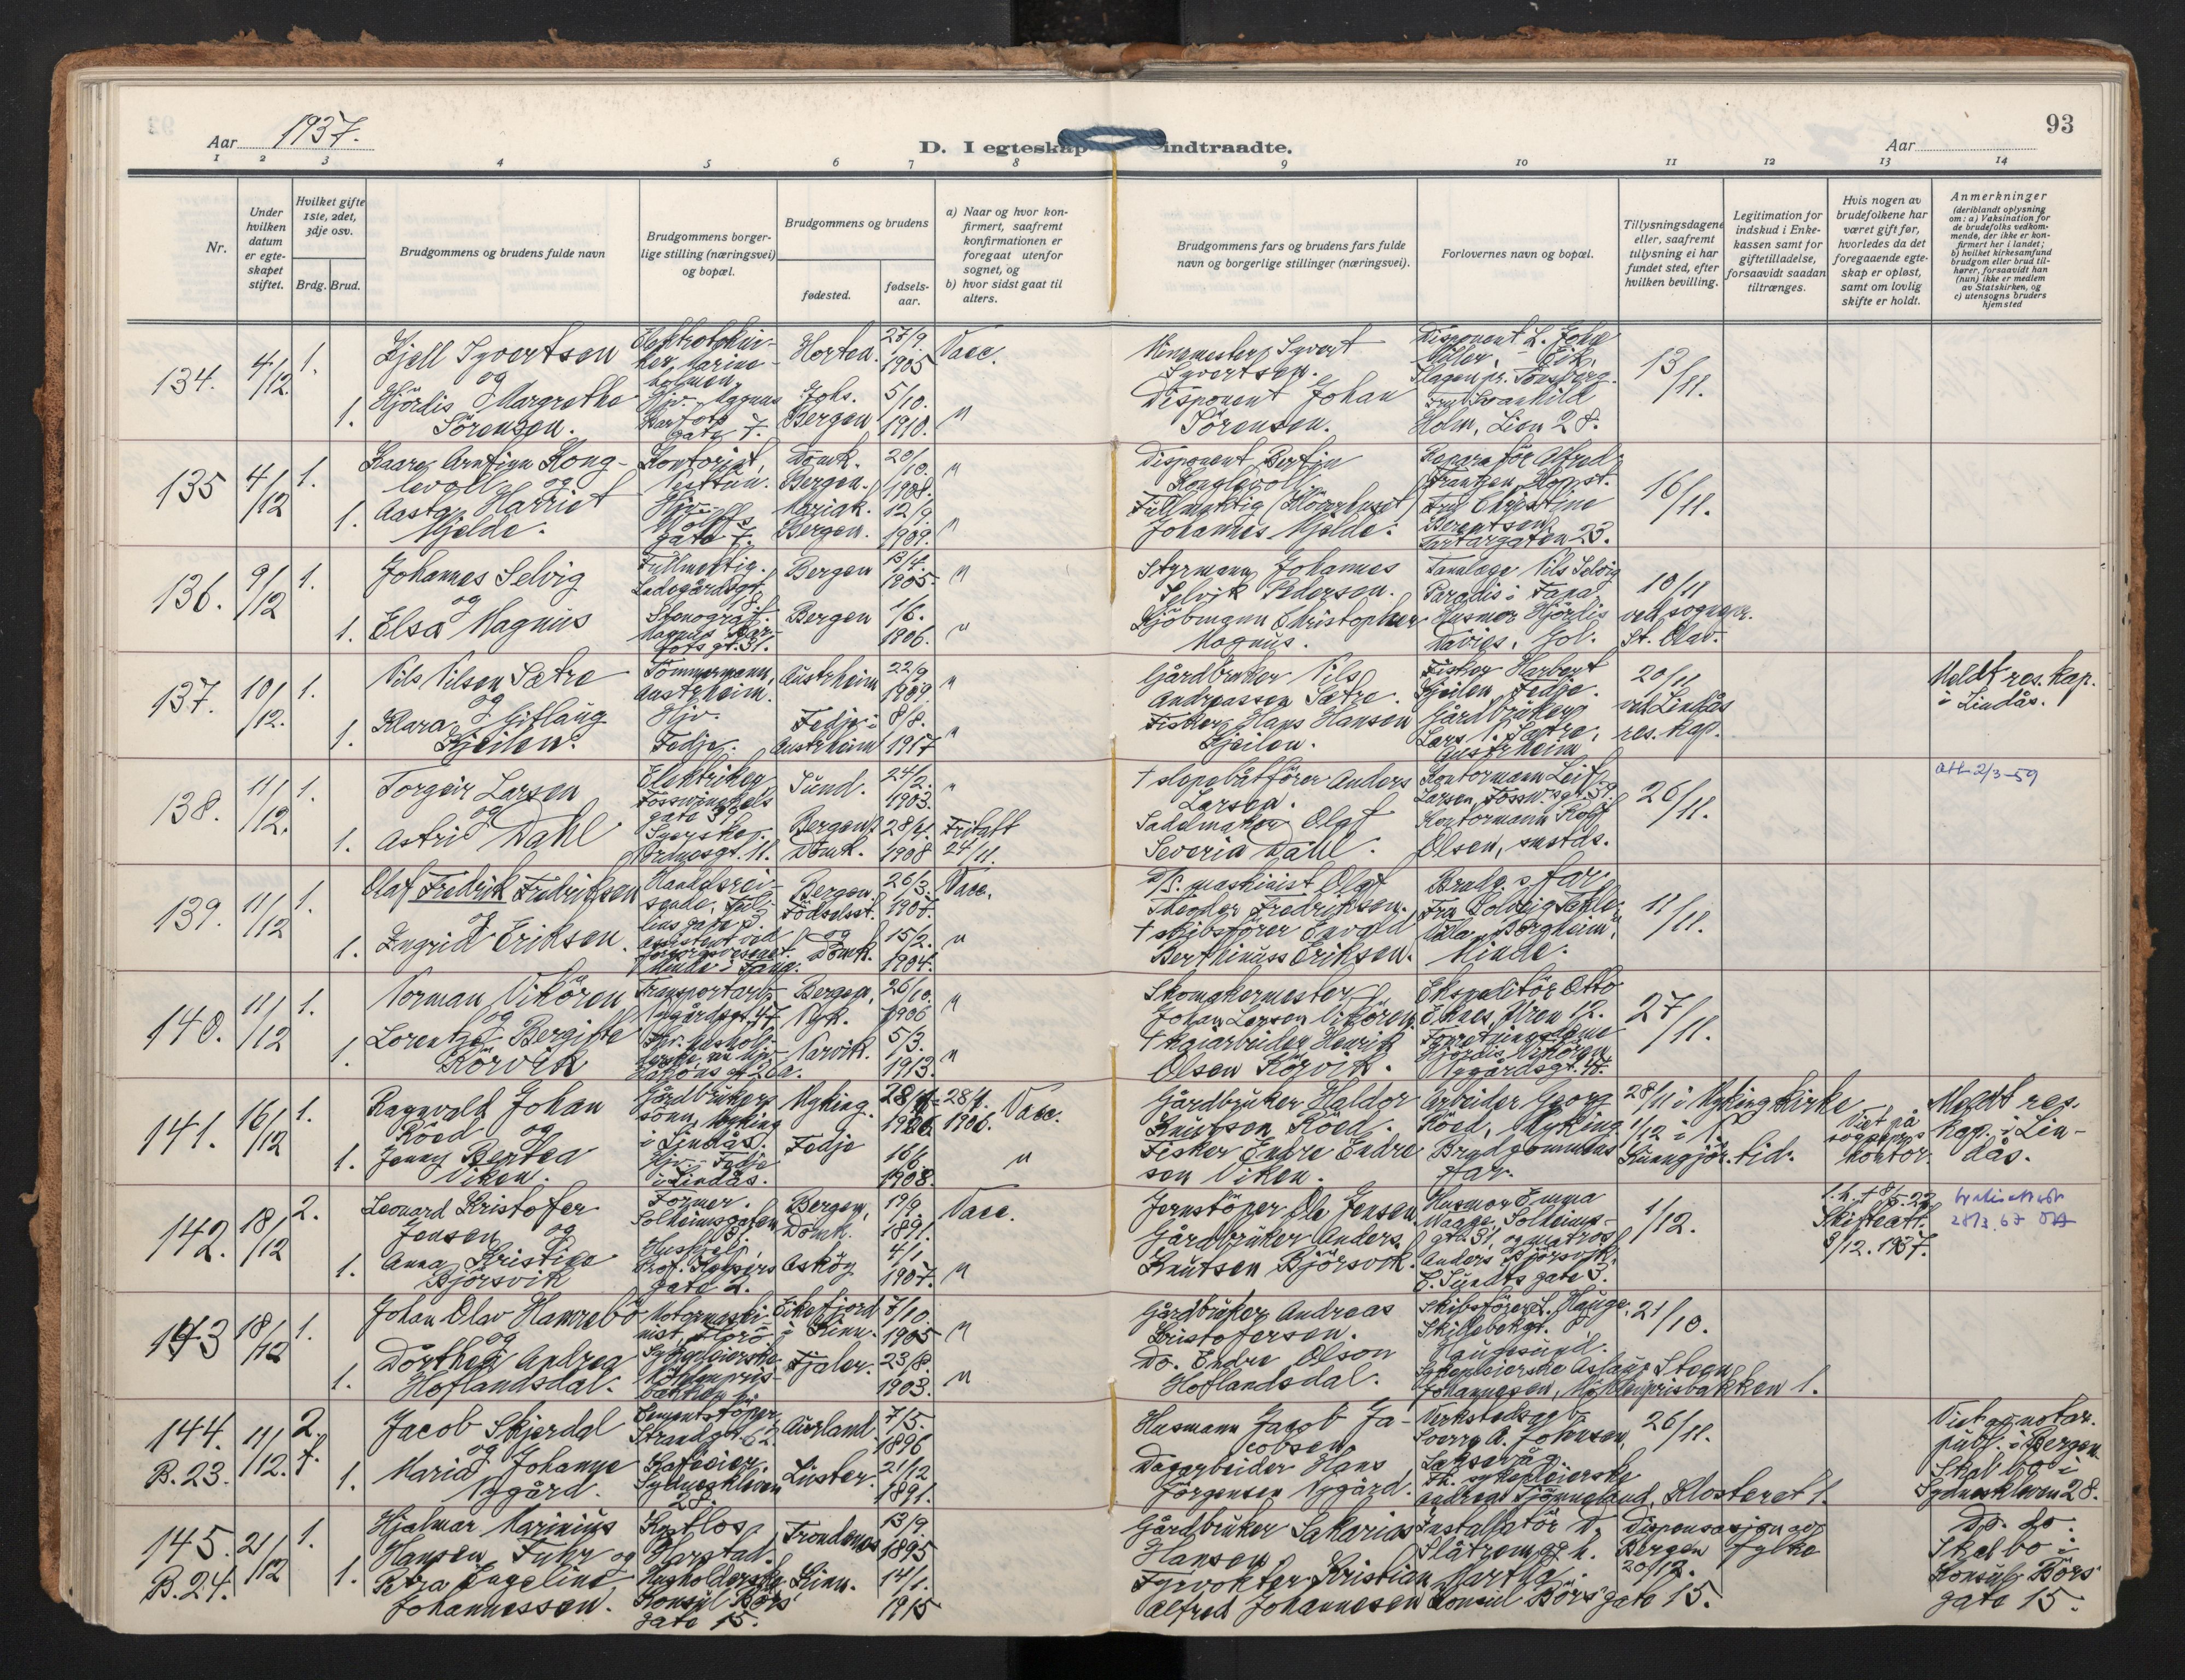 93
Aar 1937.
D. I egteskap indtraadte.
Aar
1 2 3 4 5 6 7 8 9 10 11 12 13 14
Nr.
Under hvilken datum er egteskapet stiftet.
Hvilket gifte 1ste, 2det, 3dje osv.
Brdg. Brud.
Brudgommens og brudens fulde navn
Brudgommens borgerlige stilling (næringsvei) og bopæl.
Brudgommens og brudens
fødested.
fødselsaar.
a) Naar og hvor konfirmert, saafremt konfirmationen er foregaat utenfor sognet, og
b) hvor sidst gaat til alters.
Brudgommens fars og brudens fars fulde navn og borgerlige stillinger (næringsvei).
Forlovernes navn og bopæl.
Tillysningsdagene eller, saafremt tillysning ei har fundet sted, efter hvilken bevilling.
Legitimation for indskud i Enkekassen samt for giftetilladelse, forsaavidt saadan tiltrænges.
Hvis nogen av brudefolkene har været gift før, hvorledes da det foregaaende egteskap er opløst, samt om lovlig skifte er holdt.
Anmerkninger (deriblandt oplysning om: a) Vaksination for de brudefolks vedkommende, der ikke er konfirmert her i landet; b) hvilket kirkesamfund brudgom eller brud tilhører, forsaavidt han (hun) ikke er medlem av Statskirken, og c) utensogns bruders hjemsted
134. 4/12. 1. Kjell Syvertsen
og
1. Hjördis Margrethe
Sörensen.
Horten. 27/9. 1905 Vacc.
Johs. Bergen 5/10. 1910. "
Syvert Syvertsen.
Disponent Johan Sörensen.
Disponent L. Joh
Slagen pr. Tönsberg.
Holm, Lien 28.
13/11.
135 4/12 1. Kaare Arnfinn Konglevoll og
1. Aasta Harriet
Mjelde.
Kontorist, Nesttun.
Hjv. Wolffs gate 7.
Domk. Bergen. 20/10. 1908. "
Mariak. Bergen. 12/9. 1909. "
Disponent Bertin Konglevoll
Fullmektig Johannes Mjelde.
Fru Christine Berentsen
23.
16/11.
136. 9/12 1. Johannes Selvig
og
1. Elsa Magnus
Fullmektig. Ladegårdsgt. 18.
Stenograf. Magnus Barfots gt. 31.
Bergen 13/4. 1905. "
Bergen 1/6. 1906. "
Styrmann Johannes Selvik Pedersen.
Kjöbmann Christopher Magnus.
Tannlæge Nils Selvig Paradis i Fana
Husmor Hjördis Davies, Sol.
10/11 ved sognepr. St. Olav.
137. 10/12. 1. Nils Nilsen Sætre
og
1. Klara Gitlaug
Kjeilen.
Tömmermann, Austrheim.
Hjv. Fedje.
Austrheim 22/9 1909 "
Fedje i Austrheim 8/8. 1917 "
Gårdbruker Nils Andreassen Sætre.
Fisker Hans Hansen Kjeilen.
Fisker Harbert Kjeilen Fedje.
Gårdbruker Lars N. Sætre, Austrheim
20/11 ved Lindås res. kap.
Meldt res. kap. i Lindås.
138. 11/12. 1. Torgeir Larsen
og
1. Astrid Dahl
Elektriker Fosswinckels gate 39.
Syerske. 11.
Sund. 24/2. 1903. "
Bergen, Domk. 28/4. 1908 Fritatt 24/11.
† slepebåtförer Anders Larsen.
Sadelmaker Olaf Severin Dahl.
Kontormann Leif Larsen, Fossw.s gt. 39
Kontormann Rolf Olsen, smstds.
26/11.
att 2/3-59
139. 11/12 1. Olaf Fredrik Fredriksen
og
1. Ingrid Eriksen.
Handelsreisende,
assistent ved forsorgsvesenet. Minde i Fana.
Bergen Födselsst. 26/3. 1907. Vacc.
og Domk. 15/2. 1904. "
D/S. maskinist Olaf Theodor Fredriksen.
† skibsförer Envold Berthinuss Eriksen.
Brudg.s far.
Villa Borgheim, Minde.
11/11.
140. 11/12 1. Norman Vikören
og
1. Lorentze Bergitte
Körvik
Transportarb.
Nygårdsgt. 47
Bergen, Nyk. 26/10. 1906 "
Narvik. 5/3. 1913. "
Skomakermester Johan Larsen Vikören
† kaiarbeider Henrik Olsen Körvik.
Ekspeditör Otto
Forretningsdame Hjördis Vikören Nygårdsgt. 47.
27/11.
141. 16/12 1. Ragnvald Johan
Röed og
1. Jenny Bertea
Viken.
Gårdbrukersönn, Myking i Lindås.
Hjv. Fedje i Lindås.
Myking. 28/4. 1906. 28/4. 1906. Vacc.
Fedje 1908. "
Gårdbruker Haldor Knutson Röed.
Fisker Endre Endresen Viken.
Arbeider Georg Röed, Myking
Brudgommens far.
28/11 i Myking Kirke
Kunngjör. tid.
Viet på sognepr.s kontor.
Meldt res. kap. i Lindås.
142. 18/12 2. Leonard Kristofer
Jensen og
1. Anna Kristine
Björsvik
Former. Solheimsgaten
Hushjelp, Prof. Keysers gate 2.
Bergen, Domk. 19/9. 1891. Vacc.
Asköy 4/1. 1907. "
Jernstöper Ole Jensen
Gårdbruker Anders Knutsen Björsvik.
Husmor Emma Waage, Solheimsgt. 31, og matros Anders Björsvik. E. Sundts gate 3.
1/12.
Skifteatt. 9/12. 1937.
28/3.67
143 18/12 1. Johan Olav Hamrebö
og
1. Dorthea Andrea
Hoflandsdal.
Motormaskinist, Florö
Sykepleierske Möhlenprisbakken 1.
Eikefjord i Kinn. 7/10. 1905 "
Fjaler. 23/8. 1903. "
Gårdbruker Andreas Kristofersen.
Do. Endre Olson Hoflandsdal.
Skibsförer L. Hauge, Skillebekgt. 8 Haugesund.
Sykepleierske Aslaug Stegn Johannesen, Möhlenprisbakken 1.
21/10.
144. 11/12. 2. Jacob Skjerdal
B. 23. og
1. Maria Johanne
Nygård.
Cementstöper, Strandgt. 62.
Kafeeier. Sydneskleven 28.
Aurland 7/5. 1896
Luster. 21/12 1891.
Husmann Jacob Jacobsen
Dagarbeider Hans Jörgensen Nygård.
Verkstedsarb. Sverre A. Johansen,
Fh. sykepleierske Andrea Tjönneland, Klosteret 1.
26/11.
Viet av notar. publ. i Bergen
Skal bo i Sydneskleven 28.
145. 21/12 1. Hjalmar Marinius
Hansen Fuhr og
B. 24. 1. Petra Ingeline
Johannessen.
Kystlos, Harstad.
Husholderske Konsul Börs gate 15.
Trondenes 13/9 1895
Kinn. 14/1. 1915
Gårdbruker Sakarias Hansen
Fyrvokter Kristian Alfred Johannesen
Installatör D. Slåtrem og h. Martha. Konsul Börs' gate 15.
Dispensasjon av Bergen fylke 20/12.
Do. do.
Skal bo i Konsul Börs' gate 15.